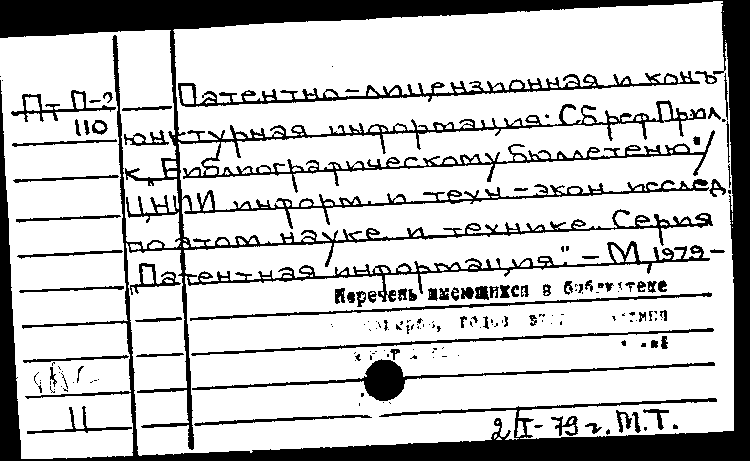 Пт П-2
110
Патентно-лицензионная и конъ
юнктурная информация: Сб.реф.Прил.
к „Библиографическому бюллетеню"/
ЦНИИ информ. и техн-экон. исслед.
по атом. науке и технике. Серия
„Патентная информация". – М, 1979 –
Перечень имеющихся в библиотеке
номеров, годов
11
2/I-79 г. М.Т.